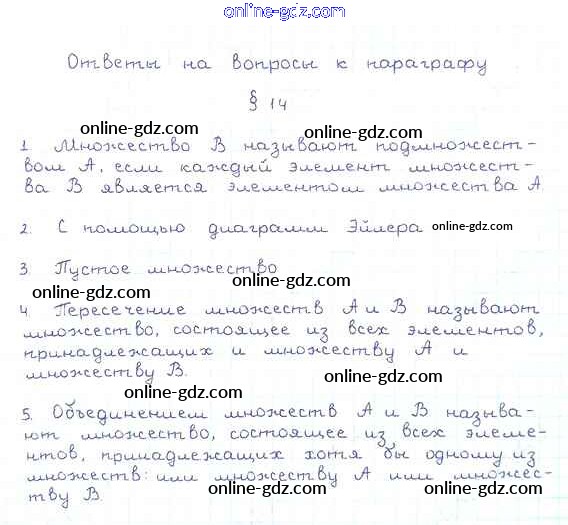 online-gdz.com
Ответы на вопросы к параграфу
§ 14
online-gdz.com
1. Множество В называют подмножест-
вом А, если каждый элемент множест-
ва В является элементом множества А
2. С помощью диаграмм Эйлера online-gdz.com
3. Пустое множество
online-gdz.com online-gdz.com
4. Пересечение множеств А и В называют
множество, состоящее из всех элементов,
принадлежащих и множеству А и
множеству В. online-gdz.com
online-gdz.com
5. Объединением множеств А и В называ-
ют множество, состоящее из всех элеме-
online-gdz.com online-gdz.com
нтов, принадлежащих хотя бы одному из
множеств: или множеству А или множес-
тву В online-gdz.com online-gdz.com
online-gdz.com